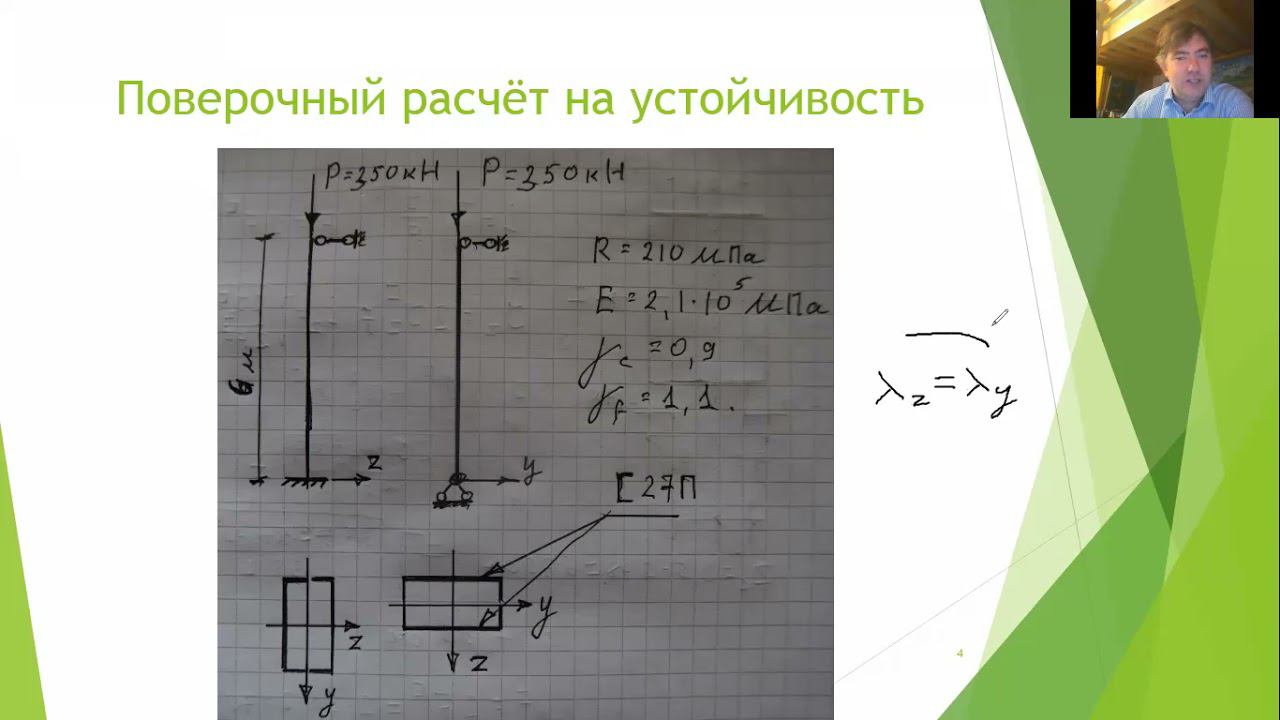 Поверочный расчёт на устойчивость
P=350кН P=350кН
R = 210 мПа
E = 2,1·10⁵ МПа
γc = 0,9
γf = 1,1.
6м
λz = λy
z
y
[ 27П
y
z
z
y
4